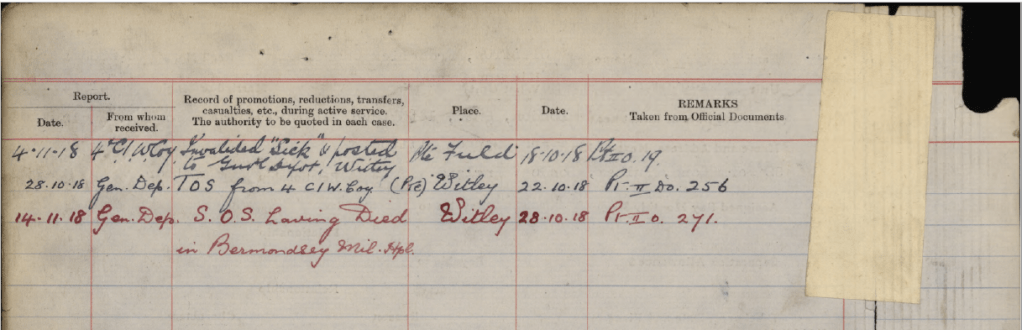 Report.
Record of promotions, reductions, transfers,
casualties, etc., during active service.
The authority to be quoted in each case.
Date.
From whom
received.
Place.
Date.
REMARKS
Taken from Official Documents
4-11-18 4th C/WCoy Invalided "Sick" & posted The Field 18-10-18 Pt II O. 19.
to Gen'l Depot, Witley
28-10-18 Gen. Dep. TOS from 4 C/W. Coy (Pte) Witley 22-10-18 Pt. II DO. 256
14-11-18 Gen. Dep. S.O.S. having Died Witley 28-10-18 Pt. II O. 271.
in Bermondsey Mil. Hpl.